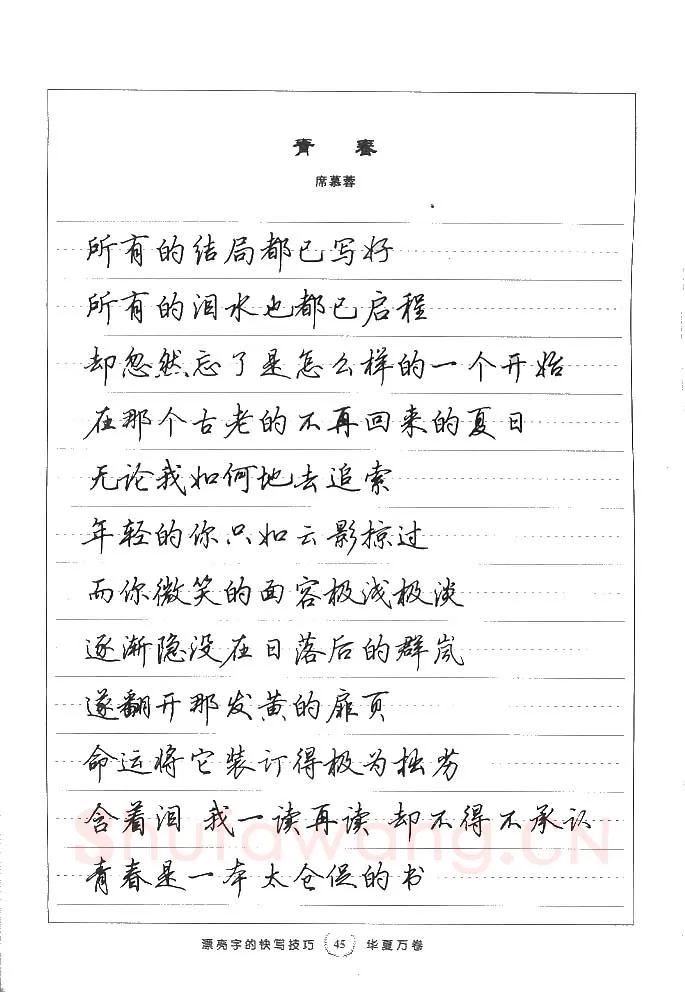 青 春
席慕蓉
所有的结局都已写好
所有的泪水也都已启程
却忽然忘了是怎么样的一个开始
在那个古老的不再回来的夏日
无论我如何地去追索
年轻的你只如云影掠过
而你微笑的面容极浅极淡
逐渐隐没在日落后的群岚
遂翻开那发黄的扉页
命运将它装订得极为拙劣
含着泪 我一读再读 却不得不承认
青春是一本太仓促的书
Shufawang.CN
漂亮字的快写技巧 45 华夏万卷